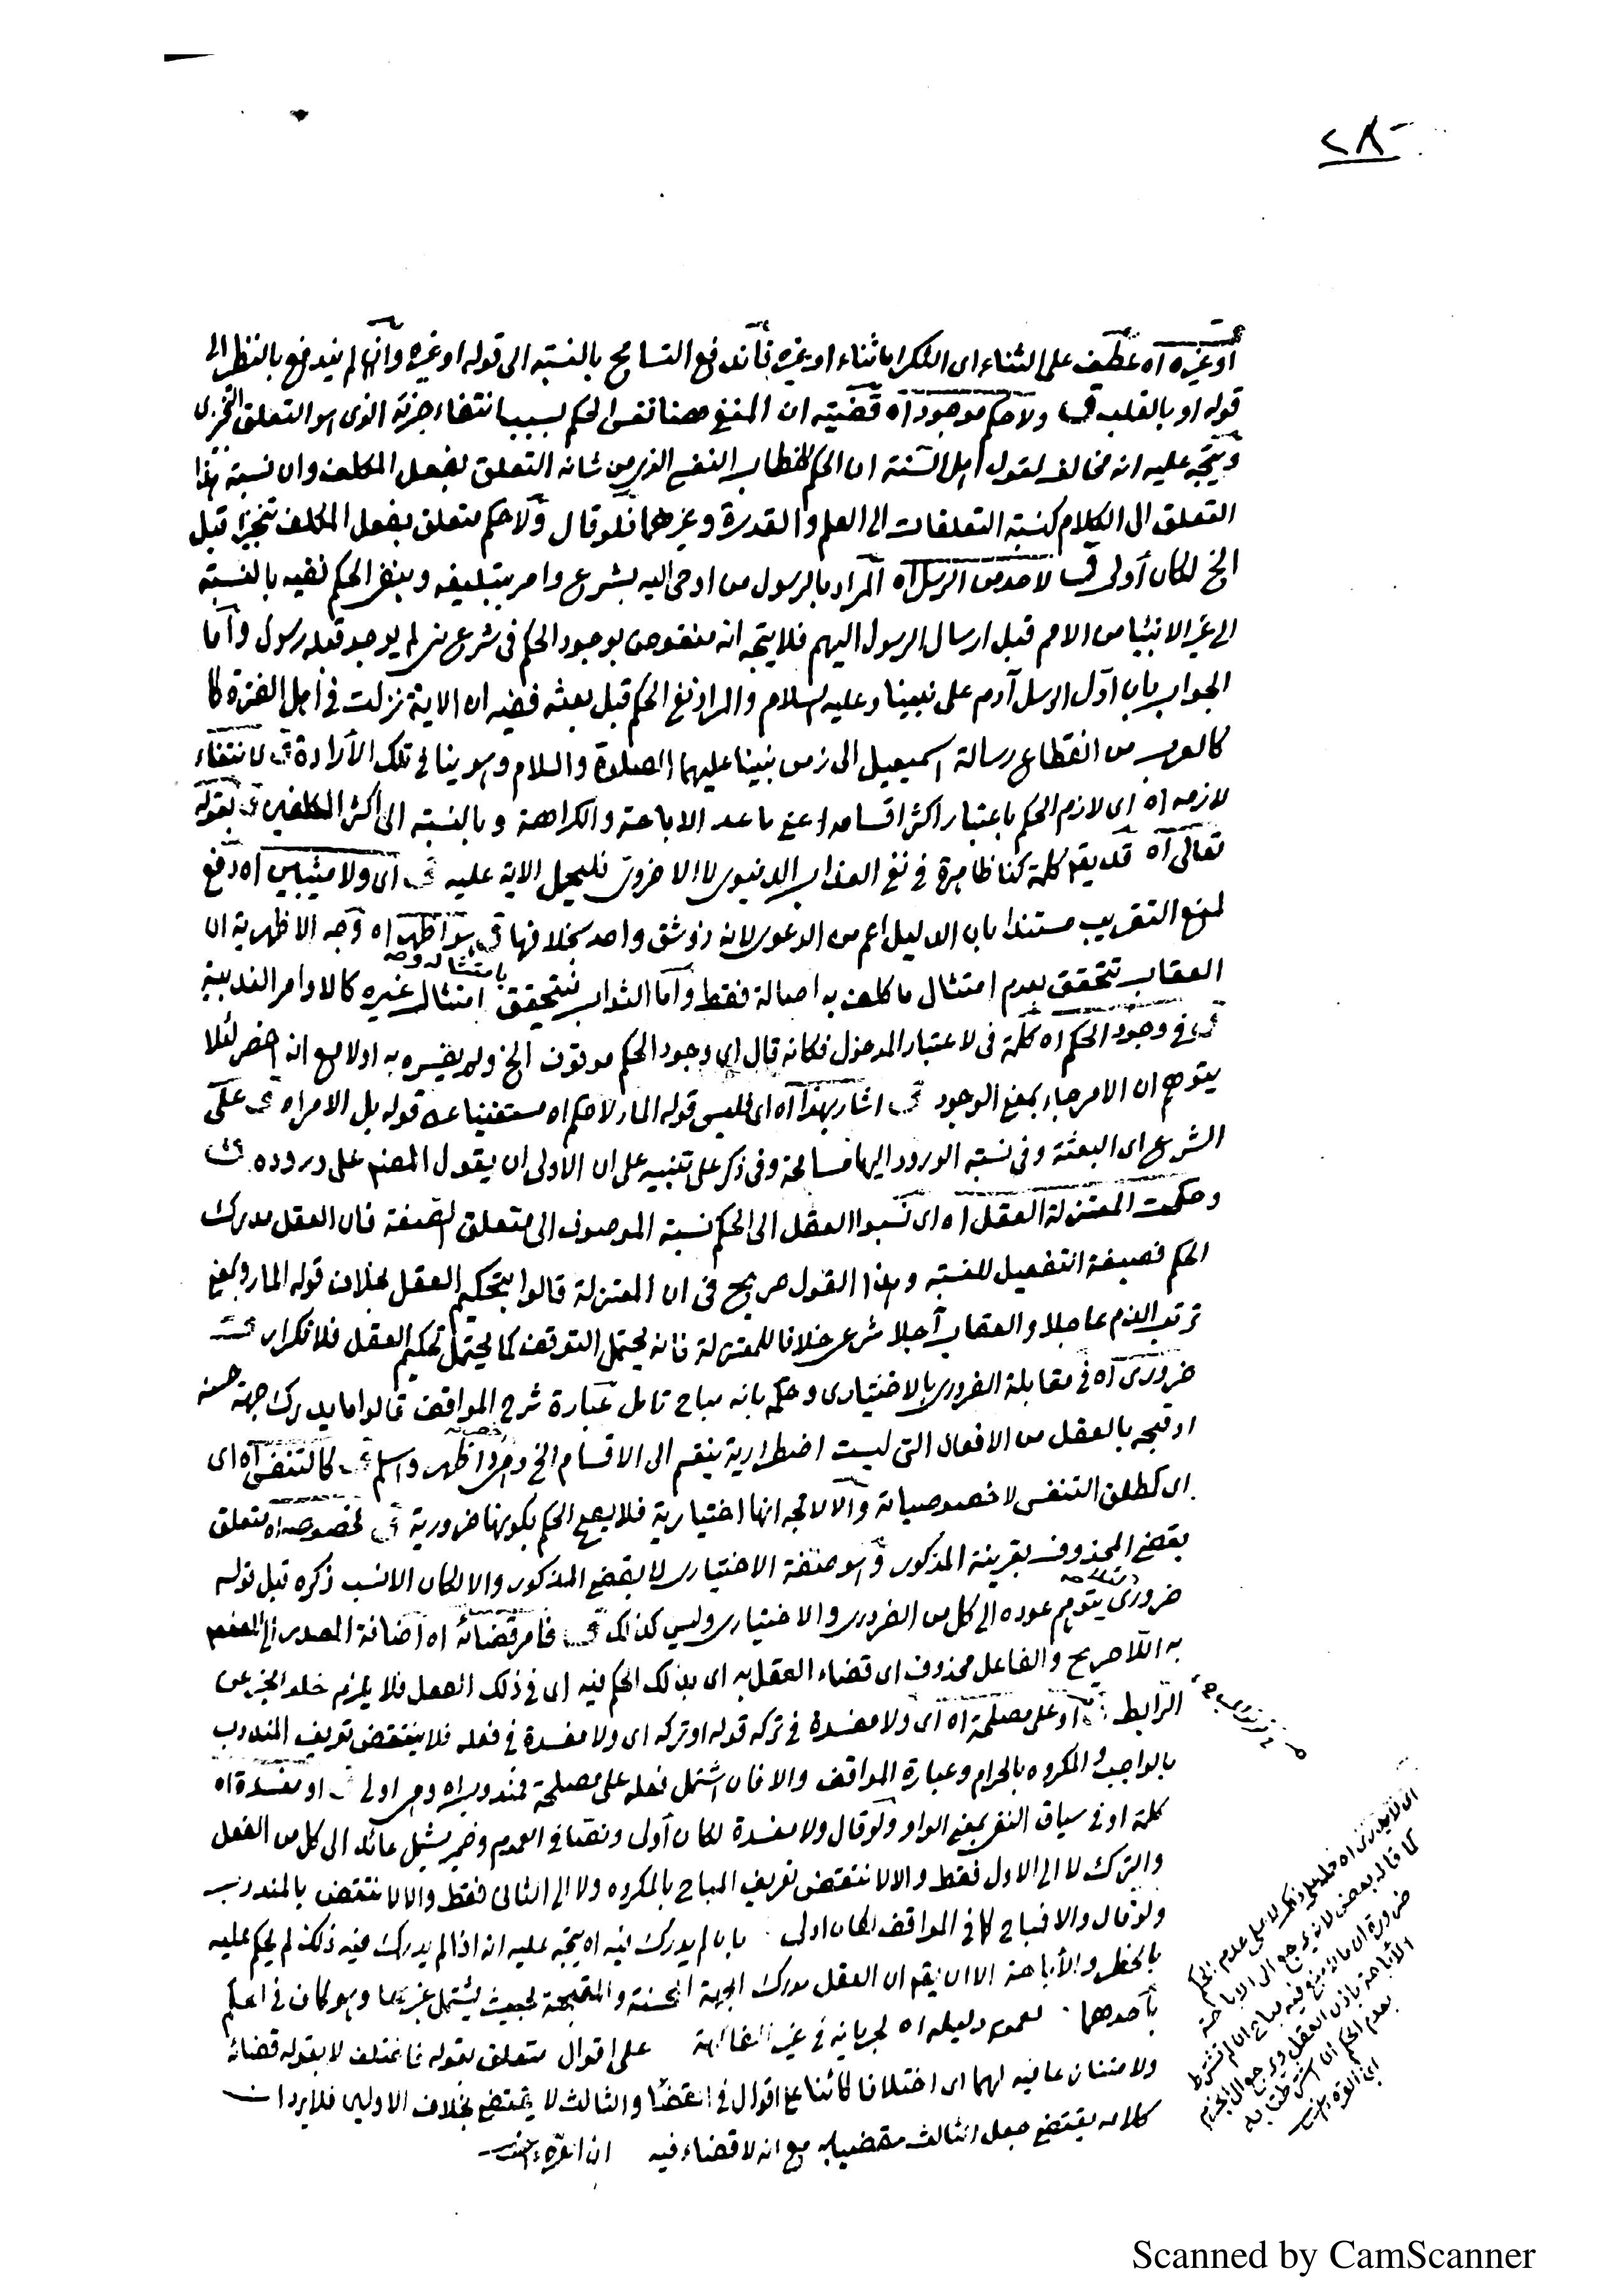 ٢٨٠
أو غيره اه عطف على الثناء اى الشكر اما ثناء او غيره فاندفع التسامح بالنسبة الى قوله او غيره وان لم يندفع بالنظر الى
قوله او بالقلب قـ ولا حكم موجود اه قضيته ان المنفى هنا نفس الحكم بسبب انتفاء جزئه الذى هو التعلق التنجيزى
ويتجه عليه انه مخالف لقول اهل السنة ان الحكم الخطاب النفسى الذى من شانه التعلق بفعل المكلف وان نسبة هذا
التعلق الى الكلام كنسبة التعلقات الى العلم والقدرة وغيرهما فلو قال ولا حكم متعلق بفعل المكلف تنجيزا قبل
الخ لكان أولى قـ لاحد من الرسل اه المراد بالرسول من اوحى اليه بشرع وامر بتبليغه وبنفى الحكم نفيه بالنسبة
الى غير الانبيا من الامم قبل ارسال الرسول اليهم فلا يتجه انه منقوض بوجود الحكم فى شرع من لم يوجد قبله رسول وأما
الجواب بان اوّل الرسل آدم على نبينا وعليه السلام والمراد نفى الحكم قبل بعثه ففيه ان الاية نزلت فى اهل الفترة كا
كالعرب من انقطاع رسالة اسمعيل الى زمن نبينا عليهما الصلوة والسلام وهو ينافى تلك الأرادة قـ لانتفاء
لازمه اه اى لازم الحكم باعتبار اكثر اقسامه اعنى ما عدا الاباحة والكراهة وبالنسبة الى اكثر المكلفين قـ بقوله
تعالى اه قد يقم كلمة كنا ظاهرة فى نفى العذاب الدنيوى لا الاخروى فليحمل الاية عليه قـ اى ولا مثيبين اه دفع
لمنع التقريب مستندا بان الدليل اعم من الدعوى لانه ذو شق واحد بخلافها قـ هو اظهر اه وجه الاظهرية ان
العقاب تتحقق بعدم امتثال ما كلف به اصالة فقط واما الثواب فيتحقق بامتثاله وصـ امتثال غيره كالاوامر الندبية
قـ فى وجود الحكم اه كلمة فى لاعتبار المدخول فكانه قال اى وجود الحكم موقوف الخ ولم يفسره به اولا مع انه اخصر لئلا
يتوهم ان الامر جاء بمعنى الوجود قـ اشار بهذا اه اى فليس قوله المار لا حكم اه مستغنيا عنه قوله بل الامر اه قـ على
الشرع اى البعثة وفى نسبة الورود اليها مسامحة وفى ذكر على تنبيه على ان الأولى ان يقول المصنف على وروده قـ
وحكمت المعتزلة العقل اه اى نسبوا العقل الى الحكم نسبة الموصوف الى متعلق الصفة فان العقل مدرك
الحكم فصيغة التفعيل للنسبة وهذا القول صريح فى ان المعتزلة قالوا بتحكيم العقل بخلاف قوله المار وبمعنى
ترتب الذم عاجلا والعقاب آجلا شرعى خلافا للمعتزلة فانه يحتمل التوقف كما يحتمل تحكيم العقل فلا تكرار قـ
ضرورى اه فى مقابلة الضرورى بالاختيارى وحكمه بانه مباح تامل عبارة شرح المواقف قالوا ما يدرك جهة حسنه
او قبحه بالعقل من الافعال التى ليست اضطرارية ينقسم الى الاقسام الخ وهى اظهر واسلم قـ كالتنفس اه اى
اى كمطلق التنفس لا خصوصياته والا لاتجه انها اختيارية فلا يصح الحكم بكونها ضرورية قـ لخصوصه اه متعلق
بقضى المحذوف بقرينة المذكور وهو صفة الاختيارى لا بقضى المذكور والا لكان الانسب ذكره قبل قوله
ضرورى يتوهم عوده الى كل من الضرورى والاختيارى وليس كذلك قـ فامر قضائه اه اضافة المصدر الى المفعم
به اللاصريح والفاعل محذوف اى قضاء العقل به اى بذلك الحكم فيه اى فى ذلك الفعل فلا يلزم خلو الخبر عن
الرابط قـ او على مصلحة اه اى ولا مفسدة فى تركه قوله او تركه اى ولا مفسدة فى فعله فلا ينتقض تعريف المندوب
بالواجب والمكروه بالحرام وعبارة المواقف والا فان اشتمل فعله على مصلحة فمندوب اه وهى اولى قـ او مفسدة اه
كلمة او فى سياق النفى بمعنى الواو ولو قال ولا مفسدة لكان أولى ونصا فى العموم وضمير يشتمل عائد الى كل من الفعل
والترك لا الى الاول فقط والا لانتقض تعريف المباح بالمكروه ولا الى الثانى فقط والا لانتقض بالمندوب
ولو قال والا فمباح كما فى المواقف لكان اولى بان لم يدرك فيه اه يتجه عليه انه اذا لم يدرك فيه ذلك لم يحكم عليه
بالحظر والأباحة الا ان يقم ان العقل مدرك الجهة المحسنة والمقبحة بحيث يشتمل غيرهما وهو كاف فى الحكم
بأحدهما لعموم دليله اه لجريانه فى غير الفاكهة على اقوال متعلق بقوله فاختلف لا بقوله قضائه
ولا متنازعا فيه لهما اى اختلافا كائنا على اقوال فى القضا والثالث لا يقتضى بخلاف الاولين فلا يرد ان
كلامه يقتضى جعل الثالث مقضيا به مع انه لا قضاء فيه
كما قاله بعض لانه يرجع الى الاباحة
ضرورة ان ما لا منع فيه مباح ان لم تشترط
الاباحة باذن العقل ويرجع الى الجزم
بعدم الحكم ان اشترطنا به
ابن القره
Scanned by CamScanner